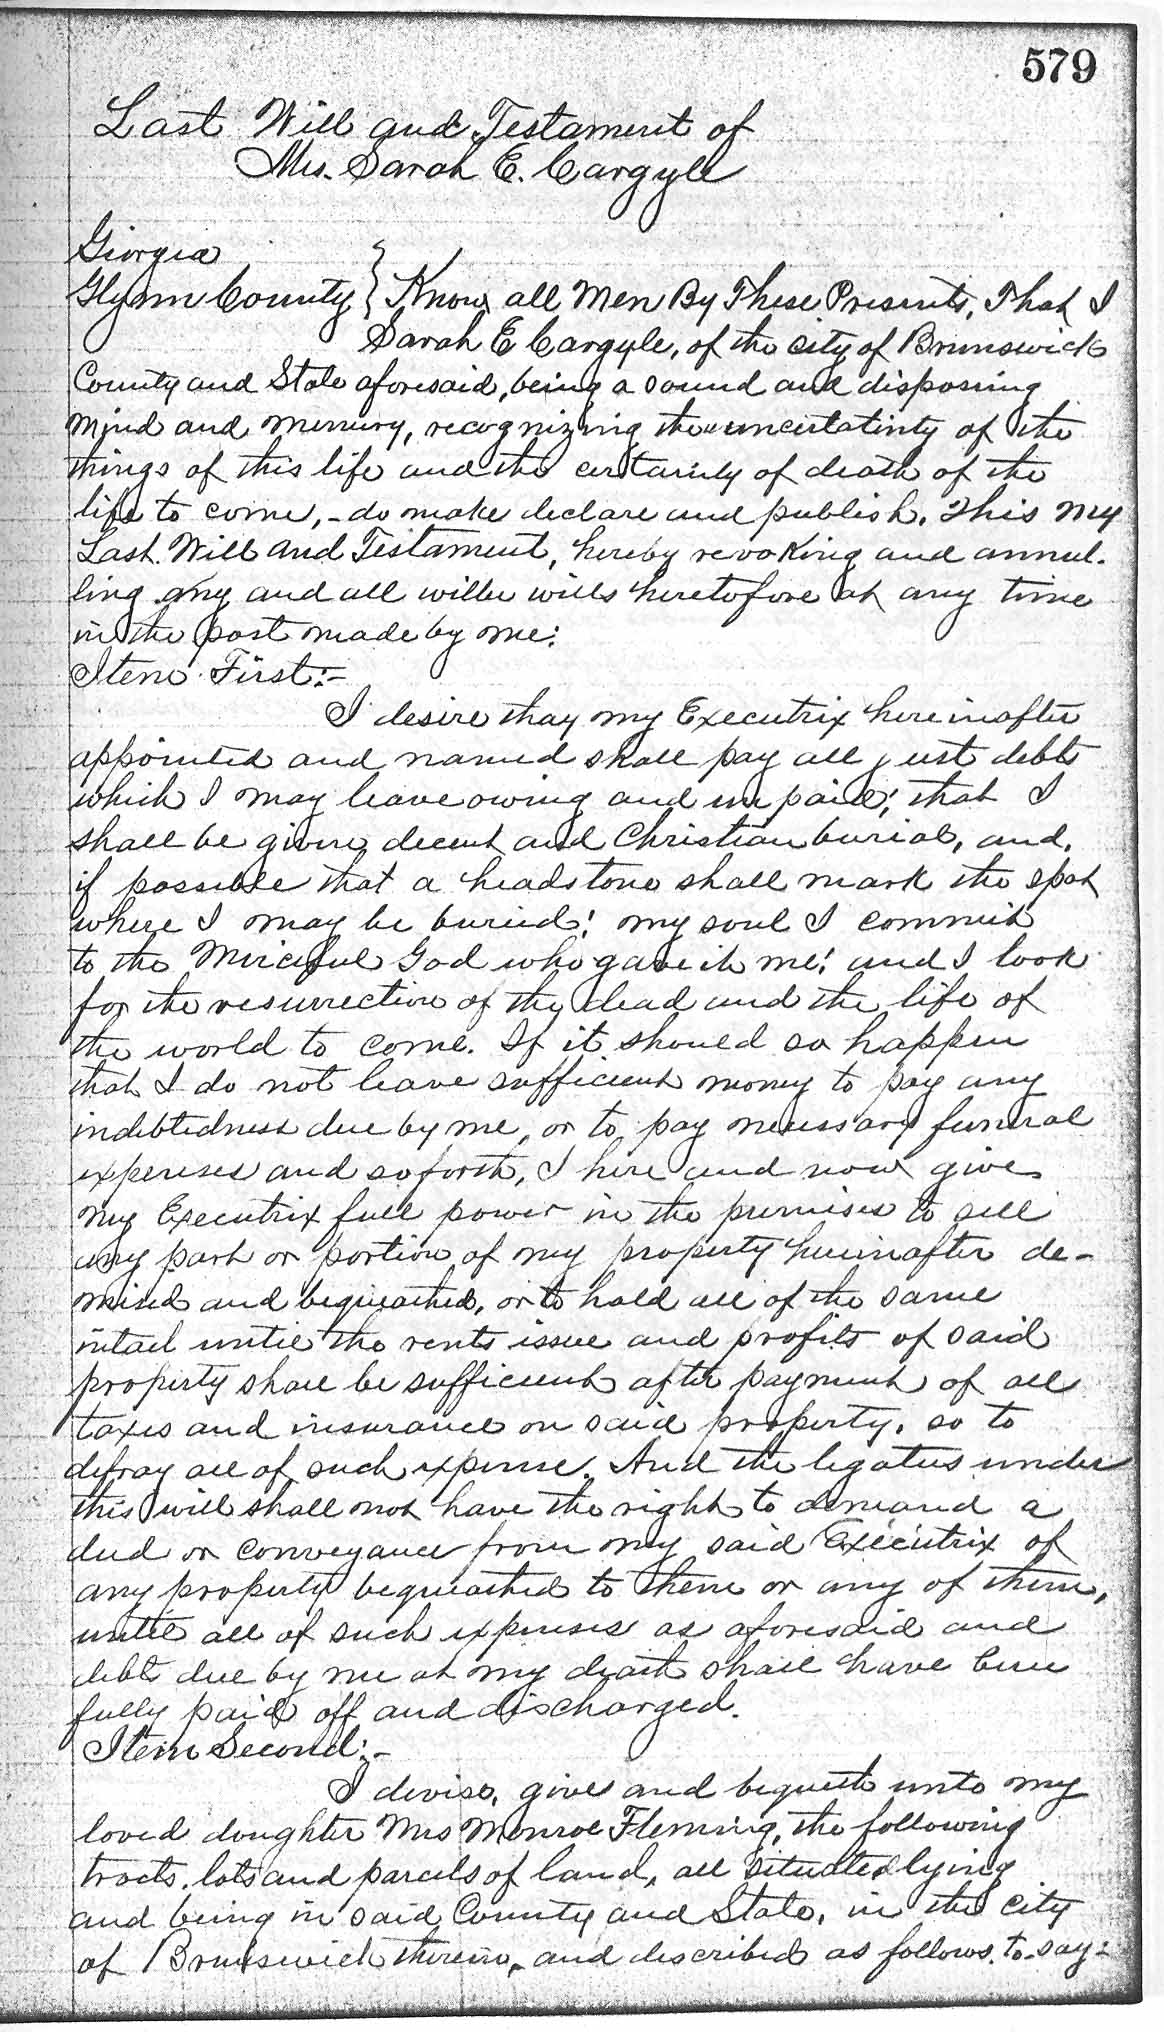 579
Last Will and Testament of
Mrs. Sarah E. Cargyle
Georgia
Glynn County } Know all Men By These Presents, That I
Sarah E Cargyle, of the city of Brunswick
County and State aforesaid, being a sound and disposing
mind and memory, recognizing the uncertatinty of the
things of this life and the certainly of death of the
life to come, - do make declare and publish, this my
Last Will and Testament, hereby revoking and annul-
ling any and all wills heretofore at any time
in the past made by me:
Item First:-
I desire thay my Executrix hereinafter
appointed and named shall pay all just debts
which I may leave owing and unpaid; that I
shall be given decent and Christian burial, and,
if possible that a headstone shall mark the spot
where I may be buried; my soul I commit
to the Merciful God who gave it me; and I look
for the resurrection of the dead and the life of
the world to come. If it should so happen
that I do not leave sufficient money to pay any
indebtedness due by me, or to pay necessary funeral
expenses and so forth, I here and now give
my Executrix full power in the premises to sell
any part or portion of my property hereinafter de-
mised and bequeathed, or to hold all of the same
intact until the rents issue and profits of said
property shall be sufficient after payment of all
taxes and insurance on said property, so to
defray all of such expense. And the legatees under
this will shall not have the right to demand a
deed or conveyance from my said Executrix of
any property bequeathed to them or any of them,
until all of such expenses as aforesaid and
debts due by me at my death shall have been
fully paid off and discharged.
Item Second:-
I devise, give and bequest unto my
loved daughter Mrs Monroe Fleming, the following
tracts, lots and parcels of land, all situated lying
and being in said County and State, in the city
of Brunswick therein, and described as follows, to-say: